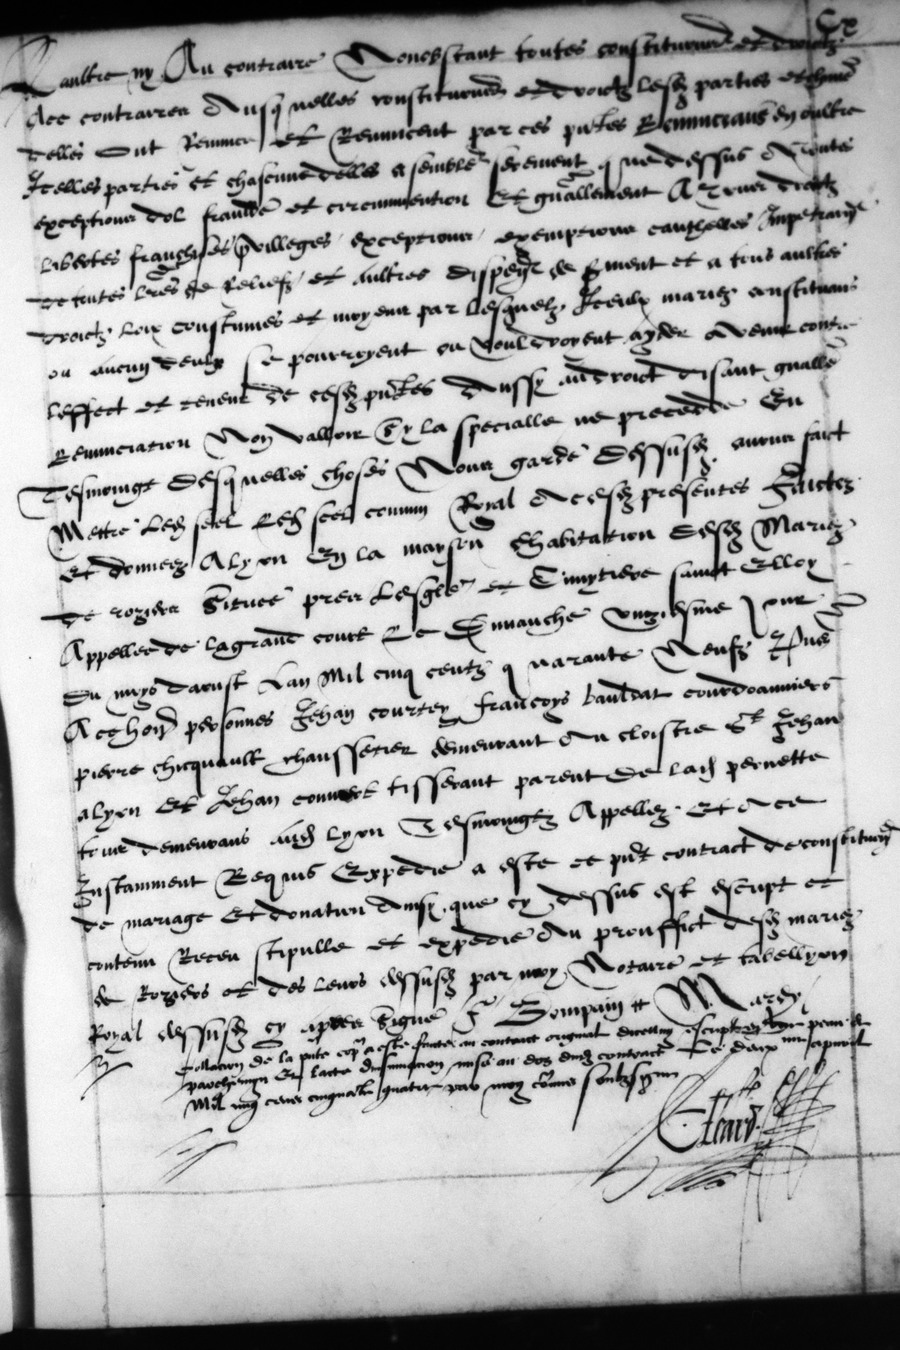 Cx
aultre ny Au contraire Nonobstant toutes constitutions et droictz
Ace contraires Ausquelles constitutions et droictz lesd parties et chune
delles ont Renunce et Renuncent par ces pntes Renuncians en oultre
Icelles parties et chascune delles a semble serement que dessus A toutes
exceptions dol fraulde et circumvention Et gnallement A tous droictz
libertes franchises privilleges exceptions exemptions cauthelles Impetrans
de toutes lres de reliefz et aultres dispense de sment et a tous aultres
droictz loix coustumes et moyens par lesquelz Iceulx mariez constituans
ou aucun deulx se pourroyent ou vouldroyent ayder A venir contre
leffect et teneur de cesd pntes Aussy au droict disant gnalle
Renunciation Non valloir Sy la specialle ne precedde En
Tesmoingt desquelles choses Nous garde dessusd avons faict
Mettre led seel Led seel commun Royal A cesd presentes Faictez
Et donnees A lyon En la mayson dhabitation desd Mariez
de rozieres Situee pres Lesglise et Cimytiere sainct Elloy
Appellee de la grand court Le Dimanche unziesme Jour
du moys daoust Lan Mil cinq centz quarante Neufz Pns
A ce honn personnes Jehan courtey francoys bauldat courdoanniers
pierre chicquault chaussetier demeurant Au cloistre St Jehan
alyon Et Jehan convert tisserant parent de lad pernette
tous demeurans Aud Lyon Tesmoingtz Appellez Et A ce
Instamment Requis Expedie a este ce pnt contract de constitution
de mariage Et donation Ainsi que cy dessus est escript et
contenu Receu stipulle et expedie Au prouffict desd mariez
de Rozieres et des leurs dessusd par moy Notaire et tabellyon
Royal dessusd cy apres signe F Bompain et Mardy
Collacion de la pnte coppie a este faicte au contract original dicelluy escript en peau de
parchemyn Et lacte dinsinuation mise au doz dud contract Le deux me apvril
Mil cinq cens cinquante quatre par moy soubzsigne